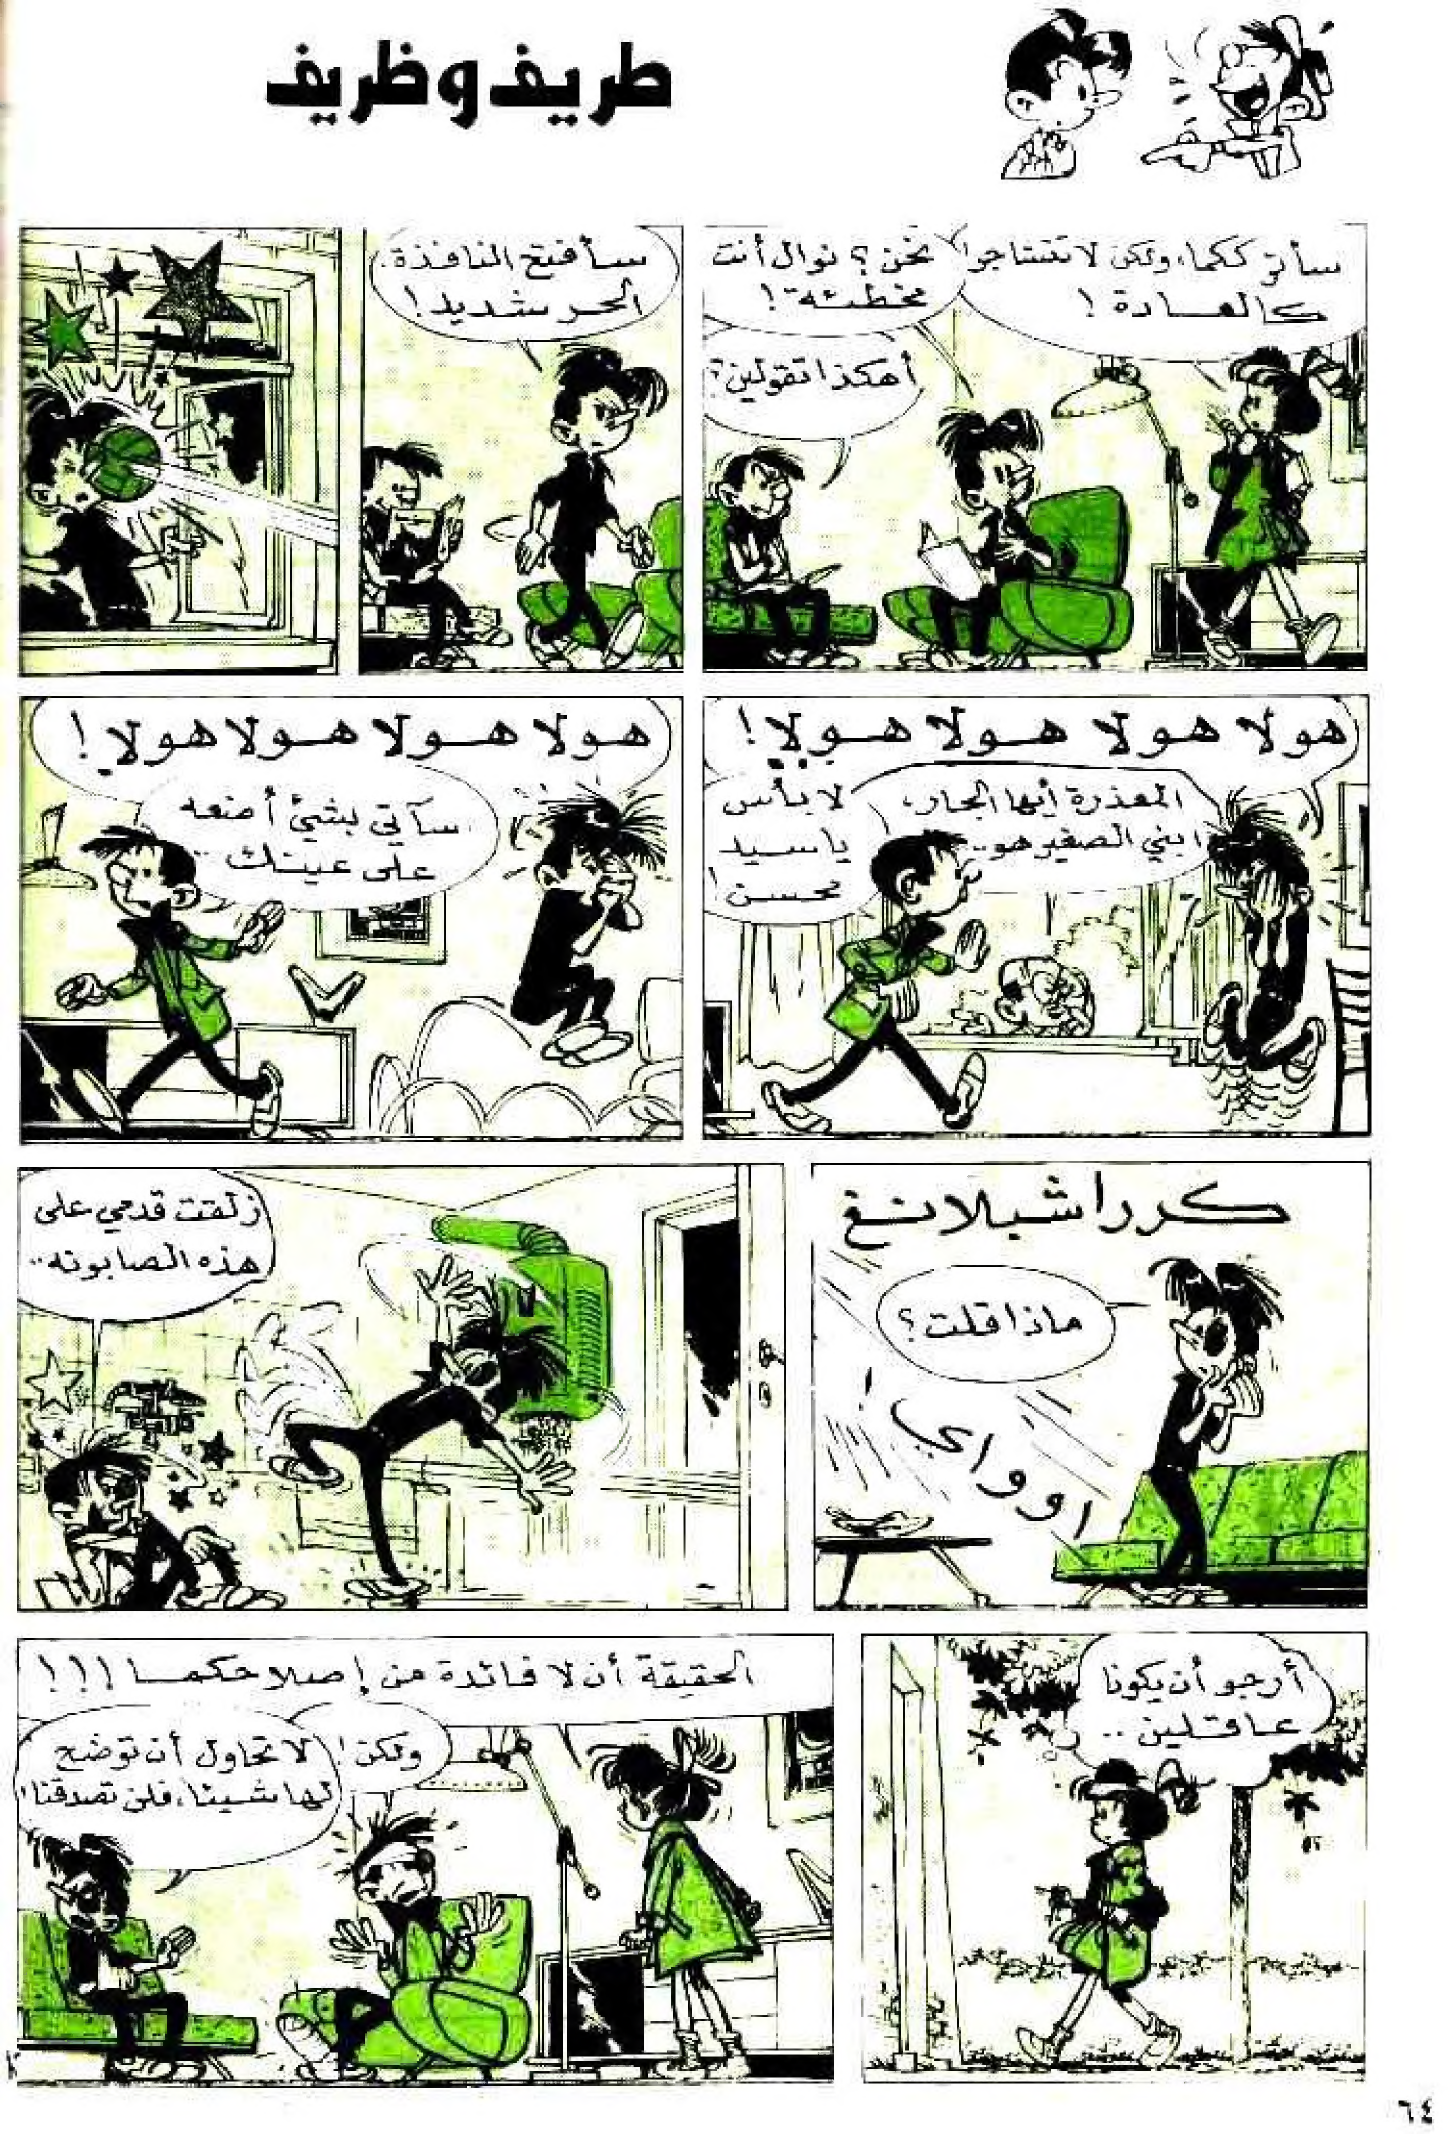 طريف وظريف
سأترككما، ولكن لا تتشاجرا
كالعادة!
نحن؟ نوال أنت
مخطئة!
أهكذا تقولين؟
سأفتح النافذة.
الحر شديد!
هولا هولا هولا هولا!
المعذرة أيها الجار،
ابني الصغير هو..
لا بأس
يا سيد
محسن!
هولا هولا هولا هولا!
سآتي بشيئ أضعه
على عينك..
كررا شبلانغ
ماذا قلت؟
اوواي!
زلقت قدمي على
هذه الصابونه..
أرجو أن يكونا
عاقلين..
الحقيقة أن لا فائدة من إصلاحكما!!!
ولكن!
لا تحاول أن توضح
لها شيئا، فلن تصدقنا!
٦٤